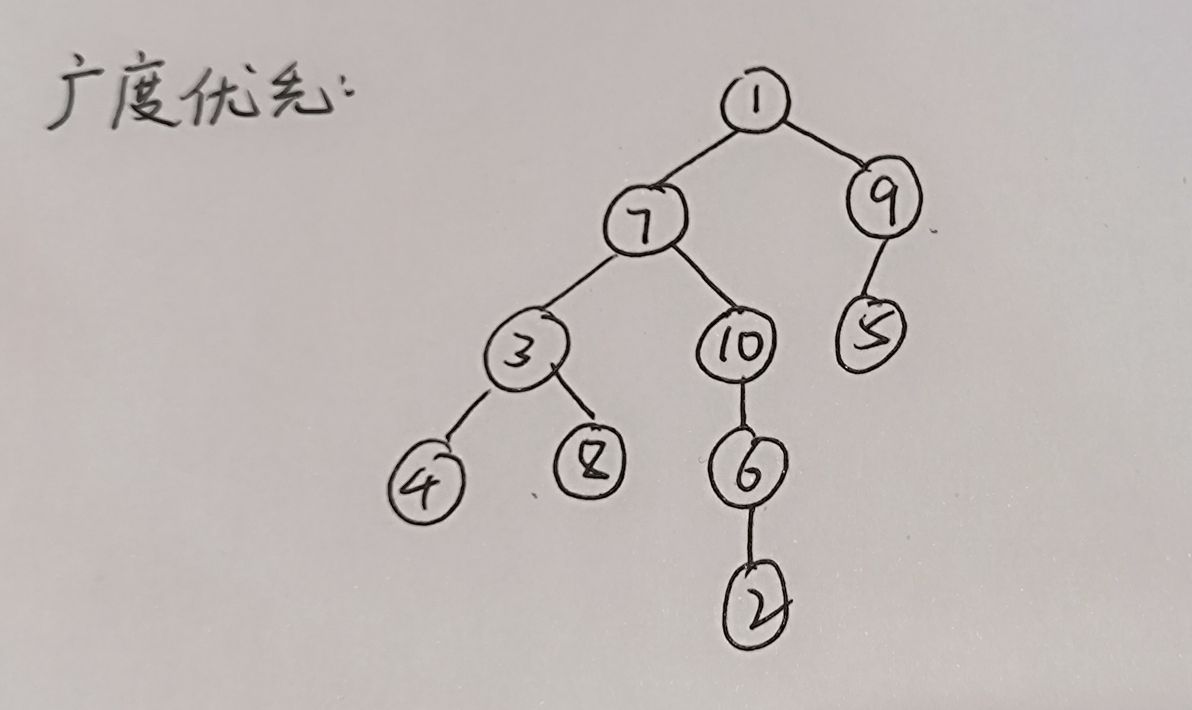 广度优先:
1
7 9
3 10 5
4 8 6
2